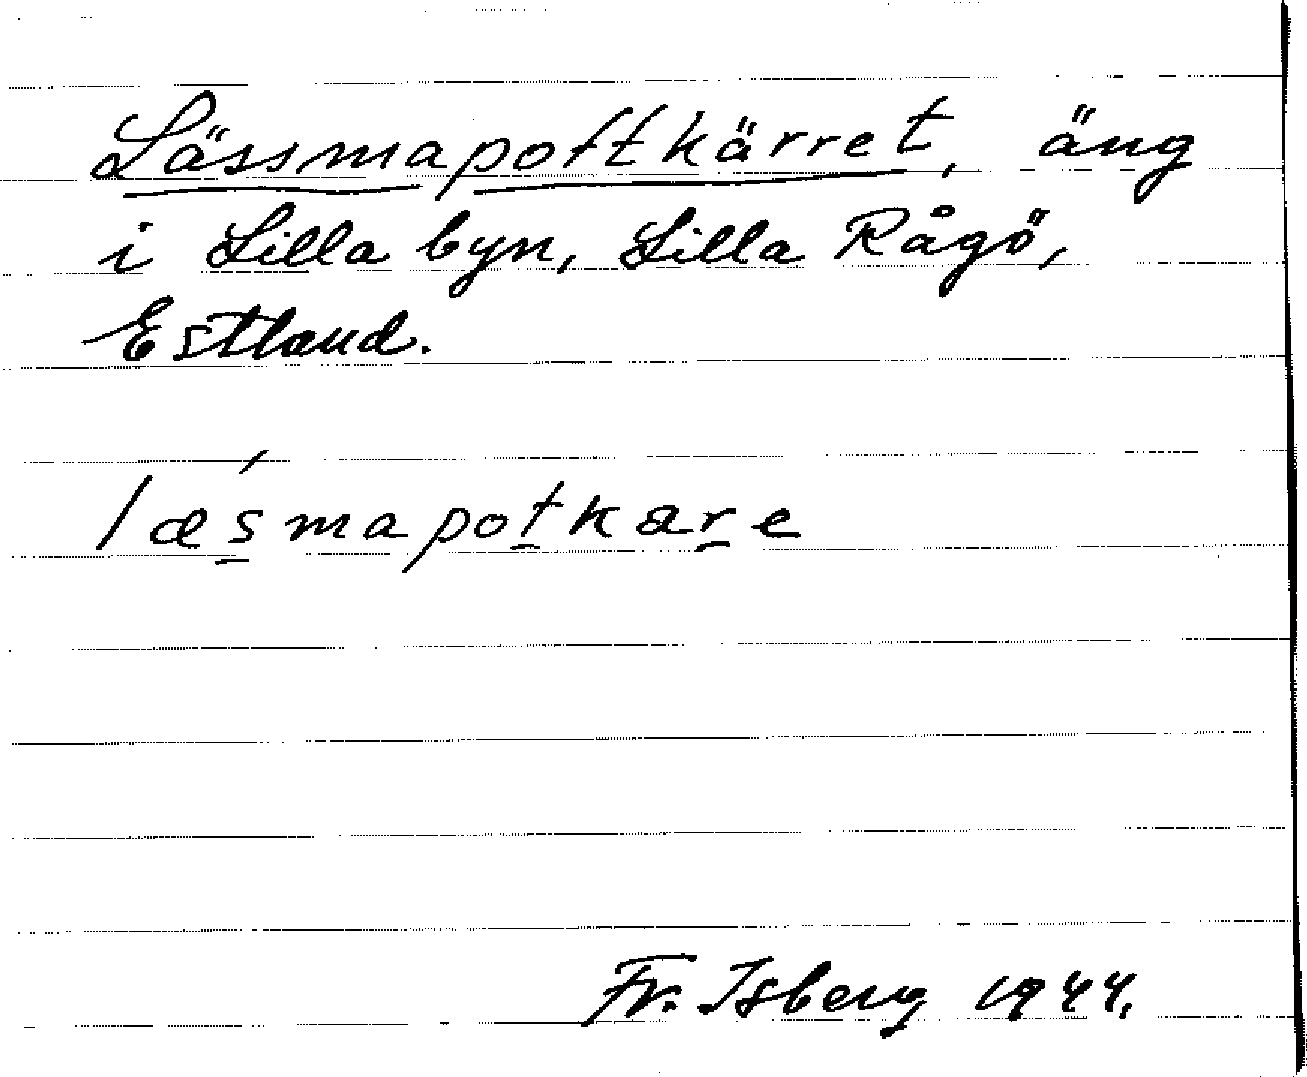 Lässmapottkärret, äng
i Lilla byn, Lilla Rågö,
Estland.
læś̲mapot̲kær̲e
Fr. Isberg 1944.